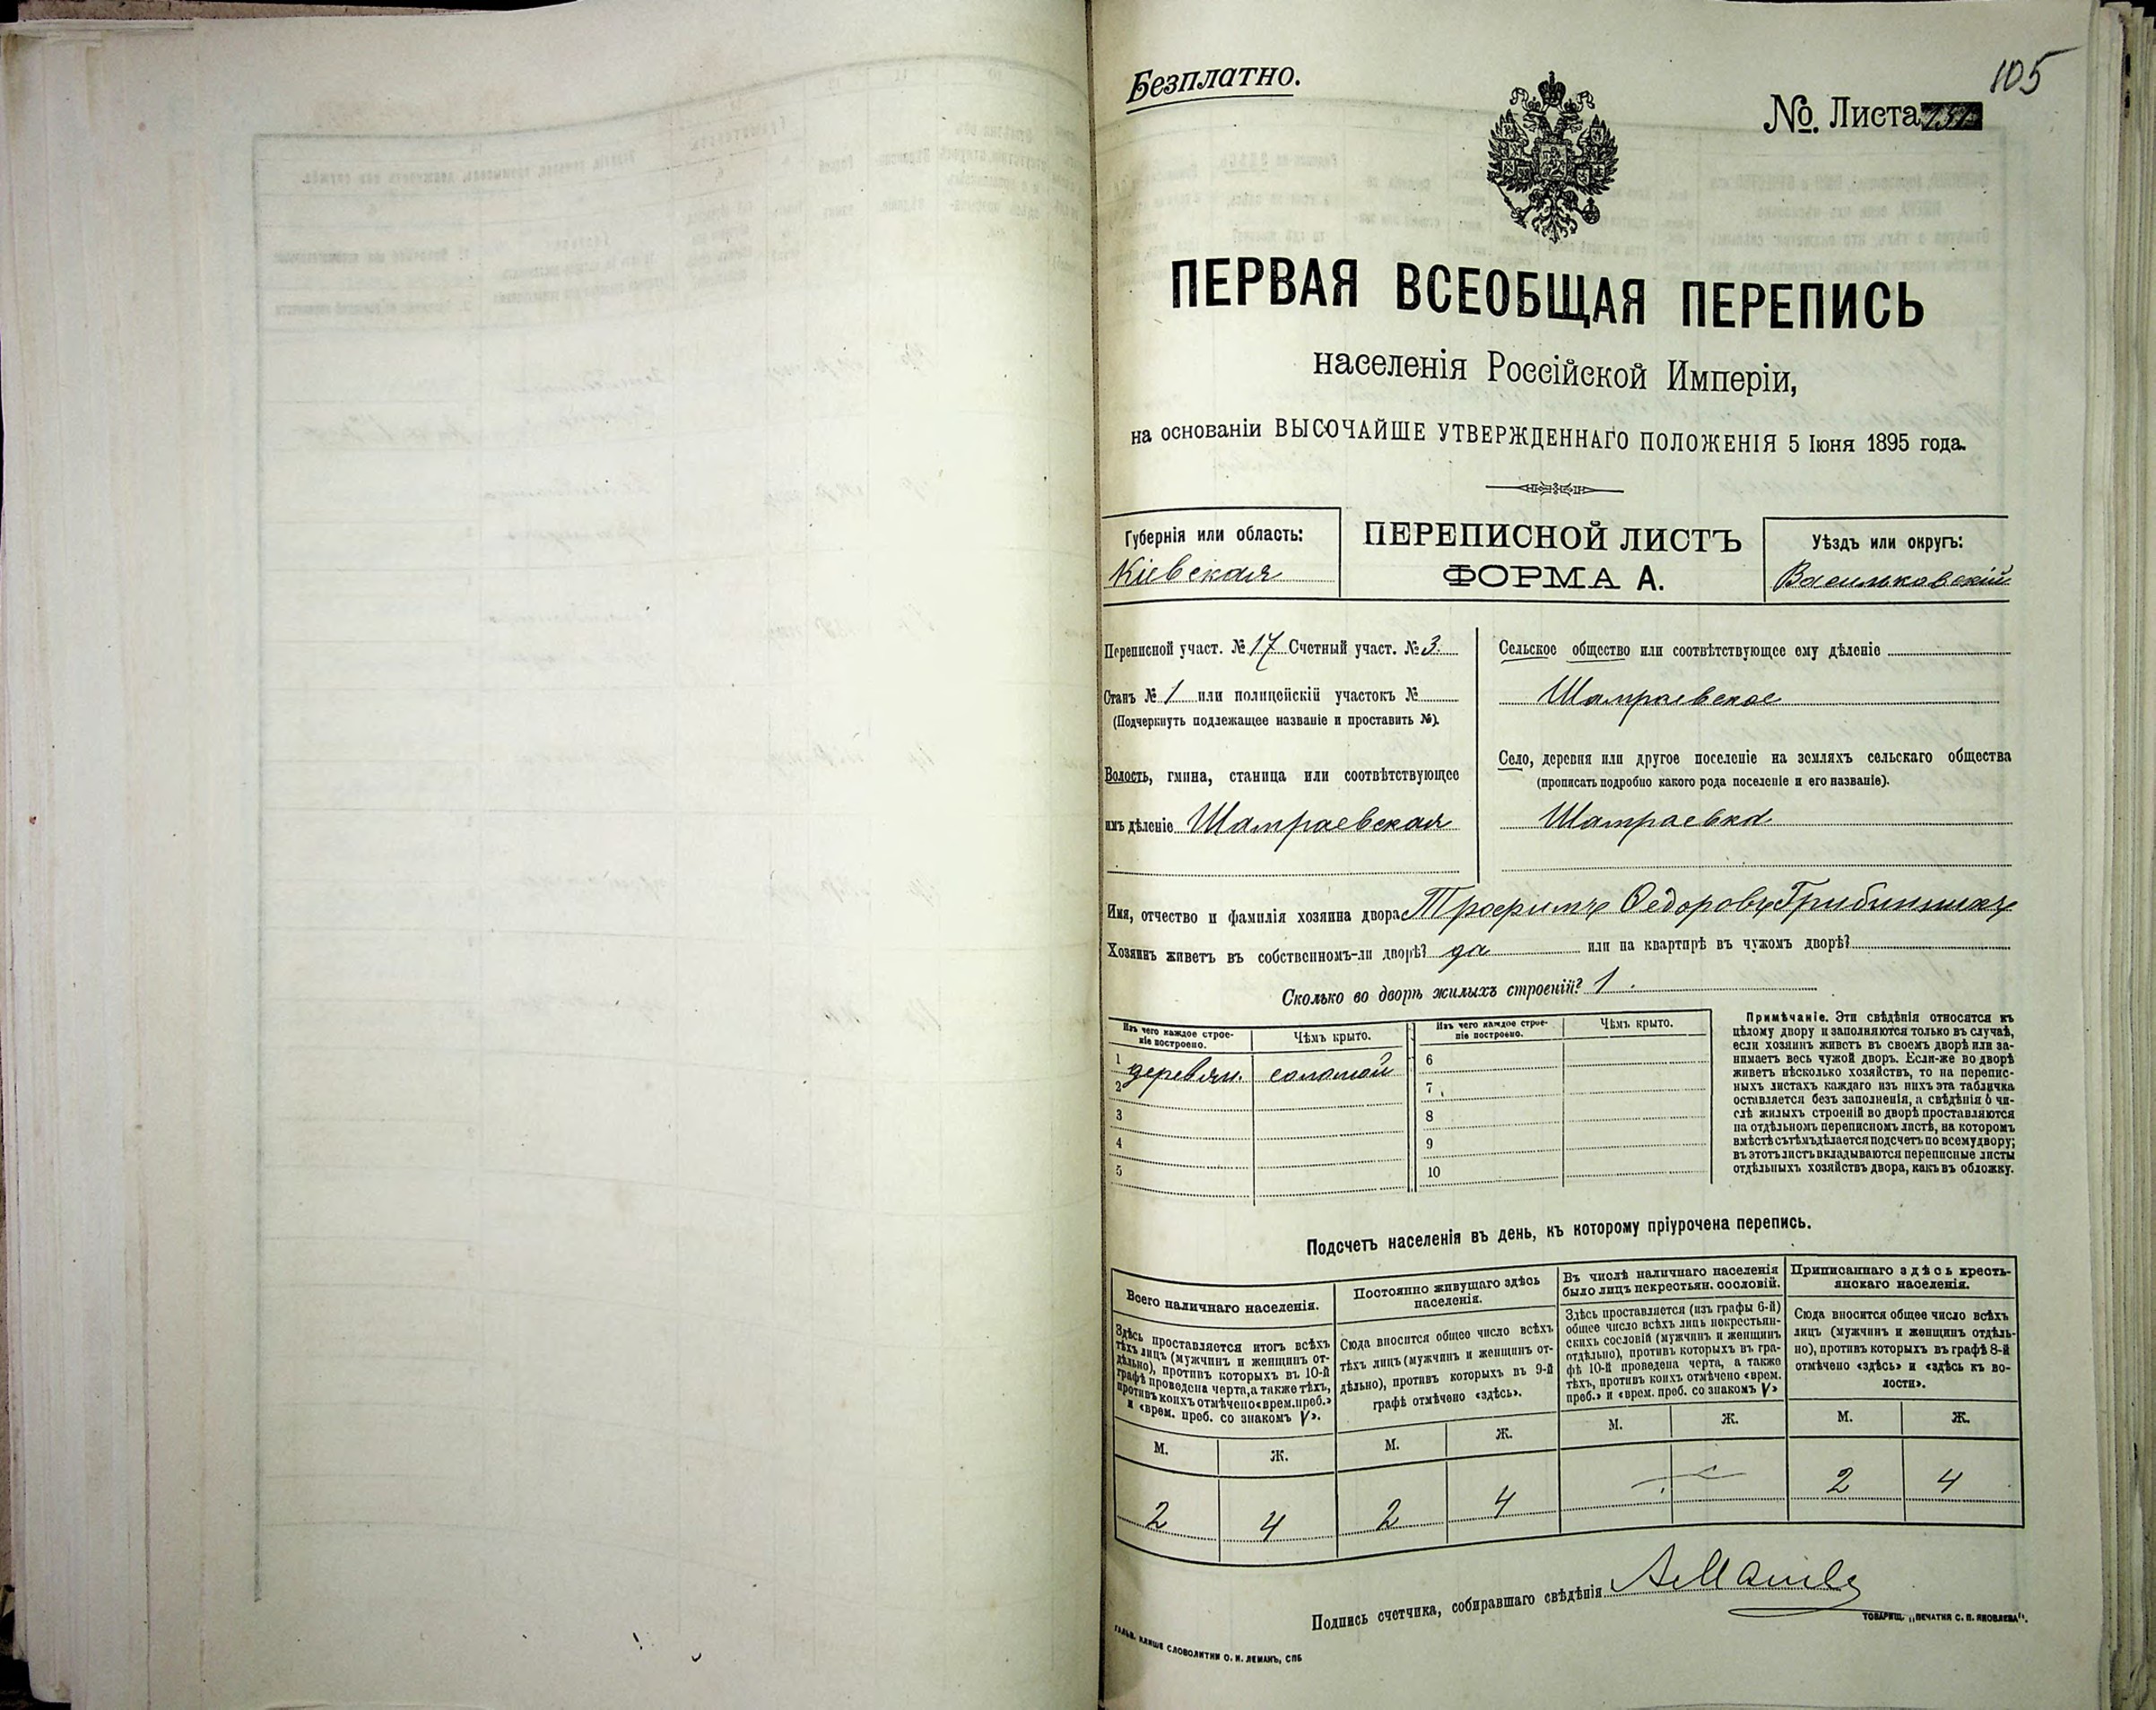 Безплатно.
105
№. Листа
ПЕРВАЯ ВСЕОБЩАЯ ПЕРЕПИСЬ
населенія Россійской Имперіи,
на основаніи ВЫСОЧАЙШЕ УТВЕРЖДЕННАГО ПОЛОЖЕНІЯ 5 Іюня 1895 года.
Губернія или область:
Кіевская
ПЕРЕПИСНОЙ ЛИСТЪ
ФОРМА А.
Уѣздъ или округъ:
Васильковскій
Переписной участ. № 17 Счетный участ. № 3.
Станъ № 1 или полицейскій участокъ №
(Подчеркнуть подлежащее названіе и проставить №).
Волость, гмина, станица или соотвѣтствующее
имъ дѣленіе Шамраевская
Сельское общество или соотвѣтствующее ему дѣленіе
Шамраевское
Село, деревня или другое поселеніе на земляхъ сельскаго общества
(прописать подробно какого рода поселеніе и его названіе).
Шамраевка
Имя, отчество и фамилія хозяина двора Трофимъ Федоровъ
Хозяинъ живетъ въ собственномъ-ли дворѣ? да или на квартирѣ въ чужомъ дворѣ?
Сколько во дворѣ жилыхъ строеній? 1.
Изъ чего каждое строе-
ніе построено.
Чѣмъ крыто.
Изъ чего каждое строе-
ніе построено.
Чѣмъ крыто.
1 деревян. соломой
2
3
4
5
6
7
8
9
10
Примѣчаніе. Эти свѣдѣнія относятся къ
цѣлому двору и заполняются только въ случаѣ,
если хозяинъ живетъ въ своемъ дворѣ или за-
нимаетъ весь чужой дворъ. Если-же во дворѣ
живетъ нѣсколько хозяйствъ, то на перепис-
ныхъ листахъ каждаго изъ нихъ эта табличка
оставляется безъ заполненія, а свѣдѣнія о чи-
слѣ жилыхъ строеній во дворѣ проставляются
на отдѣльномъ переписномъ листѣ, на которомъ
вмѣстѣ съ тѣмъ дѣлается подсчетъ по всему двору;
въ этотъ листъ вкладываются переписные листы
отдѣльныхъ хозяйствъ двора, какъ въ обложку.
Подсчетъ населенія въ день, къ которому пріурочена перепись.
Всего наличнаго населенія.
Здѣсь проставляется итогъ всѣхъ
тѣхъ лицъ (мужчинъ и женщинъ от-
дѣльно), противъ которыхъ въ 10-й
графѣ проведена черта, а также тѣхъ,
противъ коихъ отмѣчено «врем. преб.»
и «врем. преб. со знакомъ V».
Постоянно живущаго здѣсь
населенія.
Сюда вносится общее число всѣхъ
тѣхъ лицъ (мужчинъ и женщинъ от-
дѣльно), противъ которыхъ въ 9-й
графѣ отмѣчено «здѣсь».
Въ числѣ наличнаго населенія
было лицъ некрестьян. сословій.
Здѣсь проставляется (изъ графы 6-й)
общее число всѣхъ лицъ некрестьян-
скихъ сословій (мужчинъ и женщинъ
отдѣльно), противъ которыхъ въ гра-
фѣ 10-й проведена черта, а также
тѣхъ, противъ коихъ отмѣчено «врем.
преб.» и «врем. преб. со знакомъ V»
Приписаннаго здѣсь кресть-
янскаго населенія.
Сюда вносится общее число всѣхъ
лицъ (мужчинъ и женщинъ отдѣль-
но), противъ которыхъ въ графѣ 8-й
отмѣчено «здѣсь» и «здѣсь къ во-
лости».
М. Ж. М. Ж. М. Ж. М. Ж.
2 4 2 4 2 4
Подпись счетчика, собиравшаго свѣдѣнія
ТОВАРИЩ. „ПЕЧАТНЯ С. П. ЯКОВЛЕВА“.
ГАЛЬВ. КЛИШЕ СЛОВОЛИТНИ О. И. ЛЕМАНЪ, СПБ